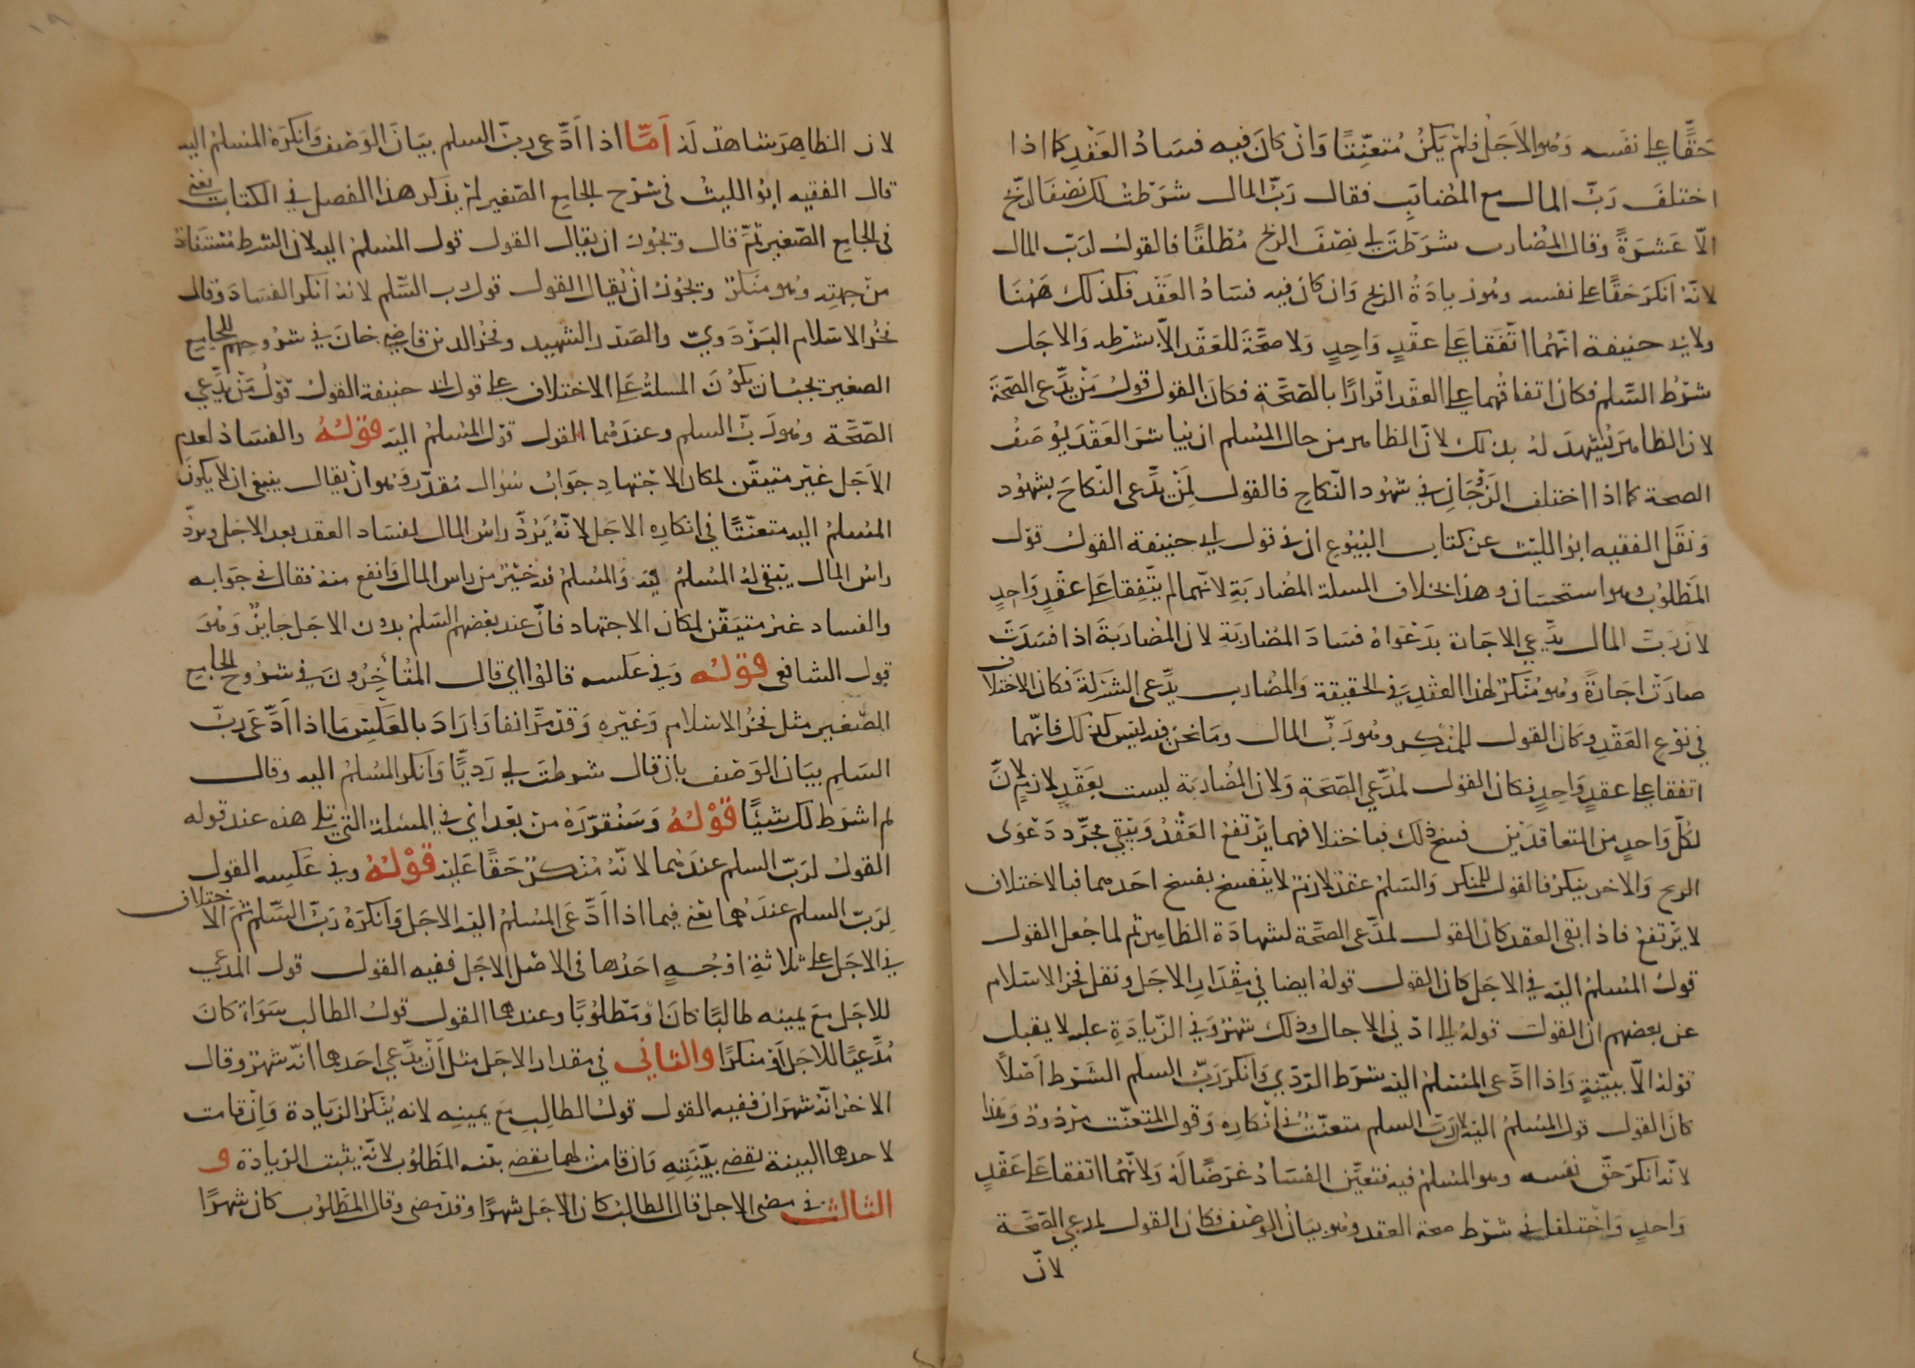 حَقًّا على نفسه وَهو الاَجَل فلم يَكنْ مُتعنّتًا وَانْ كانَ فيه فسَادُ العَقْدِ كما اذا
اختلفَ رَبّ المال مع المضارِب فقال رَبّ المال شرَطتُ لك نصْفَ الربح
الّا عَشرَةً وقال المُضارب شرَطْتَ لي نِصْفَ الربح مُطْلقًا فالقولُ لربّ المال
لانّهُ انكرَ حَقًّا على نفسه وهُو زيادَةُ الربح وَان كان فيه فسَادُ العَقْد فكذلك هَهُنَا
ولابي حنيفة انّهمُا اتّفَقا عَلى عقْدٍ وَاحِدٍ وَلا صحَّةَ للعَقْد الّا بشرْطه وَالاجَل
شرْطُ السَّلم فكان اتفاقُهما على العقْد اقْرارًا بالصّحّةِ فكانَ القول قولُ مَنْ يدّعى الصّحّةَ
لان الظاهرَ يُشْهدُ لهُ بذلك لانّ الظاهر من حال المسْلم ان يُباشرَ العَقْدَ بِوَصْفِ
الصحة كما اذا اختلف الزَوْجَانِ في شهُود النّكاح فالقول لمَنْ يدّعى النّكاحَ بشهُود
وَنقَل الفقيه ابوُ الليث عن كتاب البُيُوع ان في قول ابي حنيفة القولُ قوْل
المَطْلوُب وهو استحسَان وهذا بخلاف المسلة المُضاربَةِ لانّهما لم يتّفِقا عَلى عقْدٍ وَاحِدٍ
لان رَبّ المال يدّعي الاجَارة بدَعْوَاهُ فسَادَ المُضاربَة لان المُضاربَةَ اذا فسَدَتْ
صارَتْ اجَارَةً وهُو مُنكرٌ لهذا العقْدِ في الحقيقة وَالمُضارب يدّعى الشركةَ فكان الاختلاف
في نوْع العَقْدِ وكان القول للمنْكِر وهُو رَبّ المال ومَا نحن فيه ليسَ كذلك فانّهما
اتفقا على عقدٍ وَاحِدٍ فكان القول لمُدّعي الصّحَةِ وَلان المُضاربَة ليست بعَقْدٍ لازمٍ لانّ
لكُلّ وَاحدٍ من المتعاقدَيْن فسخ ذلك فباختلافهما يرْتفعُ العَقْدُ وَيبْقي مجرّد دَعْوَى
الربح وَالاخر ينكرُ فالقول للمنكر وَالسَلمُ عقدٌ لازمٌ لا ينْفسخ بفسخ احَدهما فبالاختلاف
لا يرْتفعُ فاذا بقى العقد كان القول لمدّعى الصّحّة لشهادَة الظاهِر ثم لما جُعل القول
قولُ المُسْلم اليْه في الاجَل كان القول قولهُ ايضا في مِقْدَارِ الاجَل ونقل فخر الاسْلام
عن بعضهم ان القولَ قولهُ الى ادْنى الاجال وذلك شهرٌ وَفي الزيَادَةِ عليْه لا يقبل
قولهُ الّا ببيّنةٍ وَاذا ادّعى المُسْلمُ اليْه شرَط الرّدِيِ وَانكرَ رَبّ السلم الشَرْط اَصْلاً
كانَ القول قول المُسْلمُ اليْه لان رَبّ السلم متعنّتٌ في انْكارِه وَقول المتعنّت مرْدودٌ وَهذا
لانّه انكرَ حَقّ نفسه وهو المسْلم فيه فتعَيّن الفسَادُ غرَضًا لَهُ وَلانّهمُا اتفقا عَلى عَقْدٍ
وَاحدٍ وَاخْتلفا في شرْط صحة العقد وهُو بيَان الوصْف فكان القول لمدعي الصّحّة
لانّ
لان الظاهِرَ شاهدٌ لَهُ اَمّا اذا اَدَّعى ربّ السلم بيَانَ الوَصْفِ وَانكرَهُ المُسْلمُ اليه
قال الفقيه ابوُ الليث في شرْح الجامع الصّغير لم يذكر هذا الفصل في الكتاب يعني
في الجامع الصّغير ثمّ قال ويجُوزُ ان يقال القول قول المُسْلم اليه لان الشرط مُسْتفادٌ
من جهته وهو منكرٌ ويجُوزُ انْ يُقال القول قول رب السَّلم لانهُ انكر الفسَادَ وقال
فخرُ الاسْلام البَزْدَويّ والصَدْر الشهيد وفخرُ الدين قاضي خانَ في شرُوحِهم للجامع
الصغير يجبُ ان يكوُنَ المسلةُ عَلى الاختلاف على قول ابي حنيفة القولُ قوْلُ مَنْ يدّعي
الصّحّة وهُو رَبّ السلم وعندَهُما القول قوْل المُسْلمُ اليْه قوْلهُ والفسَادُ لعدم
الاَجَل غيْر متيقّن لمكان الاجْتهادِ جوَابُ سُؤال مُقدّرٍ وَهو انْ يقال ينبغي ان لا يكونَ
المُسْلمُ اليْه متعنّتًا في انكارِه الاجَل لانّهُ يَرُدّ راسُ المال لفسَاد العقد بعدم الاجَل وبردّ
راسُ المال يبْقى لهُ المُسْلمُ فيه وَالمُسْلمُ فيه خيْرٌ من راس المال وَانفع منهُ فقال في جوَابه
والفساد غيْر متيَقّن لمكان الاجتهاد فانّ عند بعْضهم السَلمُ بدون الاجَل جَايزٌ وَهُوَ
قول الشافعي قوْلهُ وَفي عَكسه قالوا اي قال المتأخِرُونَ في شرُوح الجامع
الصَّغير مثل فخرُ الاسْلام وَغيْرِهِ وَقدْ مَرّ انفا وَارَادَ بالعَكْسِ مَا اذا ادّعَى رَبّ
السَلمِ بيَانَ الوَصْف بان قال شرطتَ لي رَديًّا وَانكر المُسْلمُ اليه وقال
لم اشرَط لك شيْئًا قوْلهُ وَسَنُقرّرُهُ منْ بعْد اي في المسْلة التي تلي هذه عند قوله
القولُ لرَبّ السلم عندَهُما لانّهُ مُنْكرٌ حَقًّا عَليْه قوْلهُ وفي عَكسِه القول
لِرَبّ السلم عندَهُما يعْني فيما اذا ادّعَى المُسْلمُ اليْه الاجَل وَانكرَهُ رَبّ السّلم ثمَ الاختلاف
في الاجَل على ثلاثةِ اوْجُهٍ احَدُها في اصْل الاجَل ففيه القول قول المُدعي
للاجَل معَ يمينه طالبًا كانَ اوْ مَطْلوُبًا وعندهما القول قولُ الطالب سَوَاءٌ كانَ
مُدَّعِيًا للاجَل اوْ منكرًا والثاني في مقدار الاجَل مثل اَنْ يدّعي احَدهما انّه شهرٌ وقال
الاخرُ انّهُ شهرَان ففيه القول قولُ الطالبِ معَ يمينه لانه يُنْكرُ الزيَادة وَاِنْ قامت
لاحدهما البينة يقضى ببيّنَتِهِ وَان قامتْ لهما يقضى ببيّنة المَطْلوُب لانّهُ يثبت الزيادَة و
الثالث في مضى الاجل قال الطالبُ كان الاجَل شهرًا وقدْ مضى وقال المَطْلوُب كان شهرًا